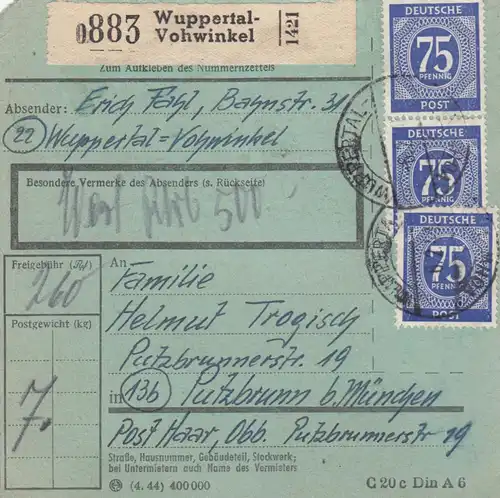 0883 Wuppertal-Vohwinkel 1421
Zum Aufkleben des Nummernzettels
DEUTSCHE
75
PFENNIG
POST
DEUTSCHE
75
DEUTSCHE
75
PFENNIG
POST
Absender: Erich Fähl, Bahnstr. 31
(22) Wuppertal=Vohwinkel
Besondere Vermerke des Absenders (s. Rückseite)
Wert 500
Freigebühr (Rpf)
260
Postgewicht (kg)
7.
An
Familie
Helmut Trogisch
Putzbrunnerstr. 19
in (13b) Putzbrunn b. München
Post Haar, Obb. Putzbrunnerstr 19
Straße, Hausnummer, Gebäudeteil, Stockwerk;
bei Untermietern auch Name des Vermieters
(4. 44) 400 000
C 20 c Din A 6